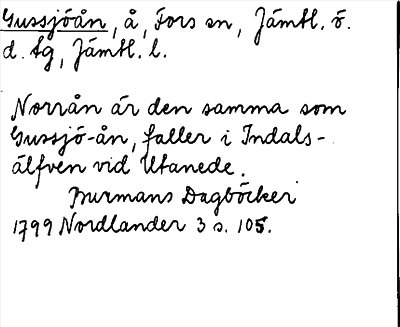 Gussjöån, å, Fors sn, Jämtl. ö.
d. tg, Jämtl. l.
Norrån är den samma som
Gussjö-ån, faller i Indals-
älfven vid Utanede.
Burmans Dagböcker
1799 Nordlander 3 s. 105.